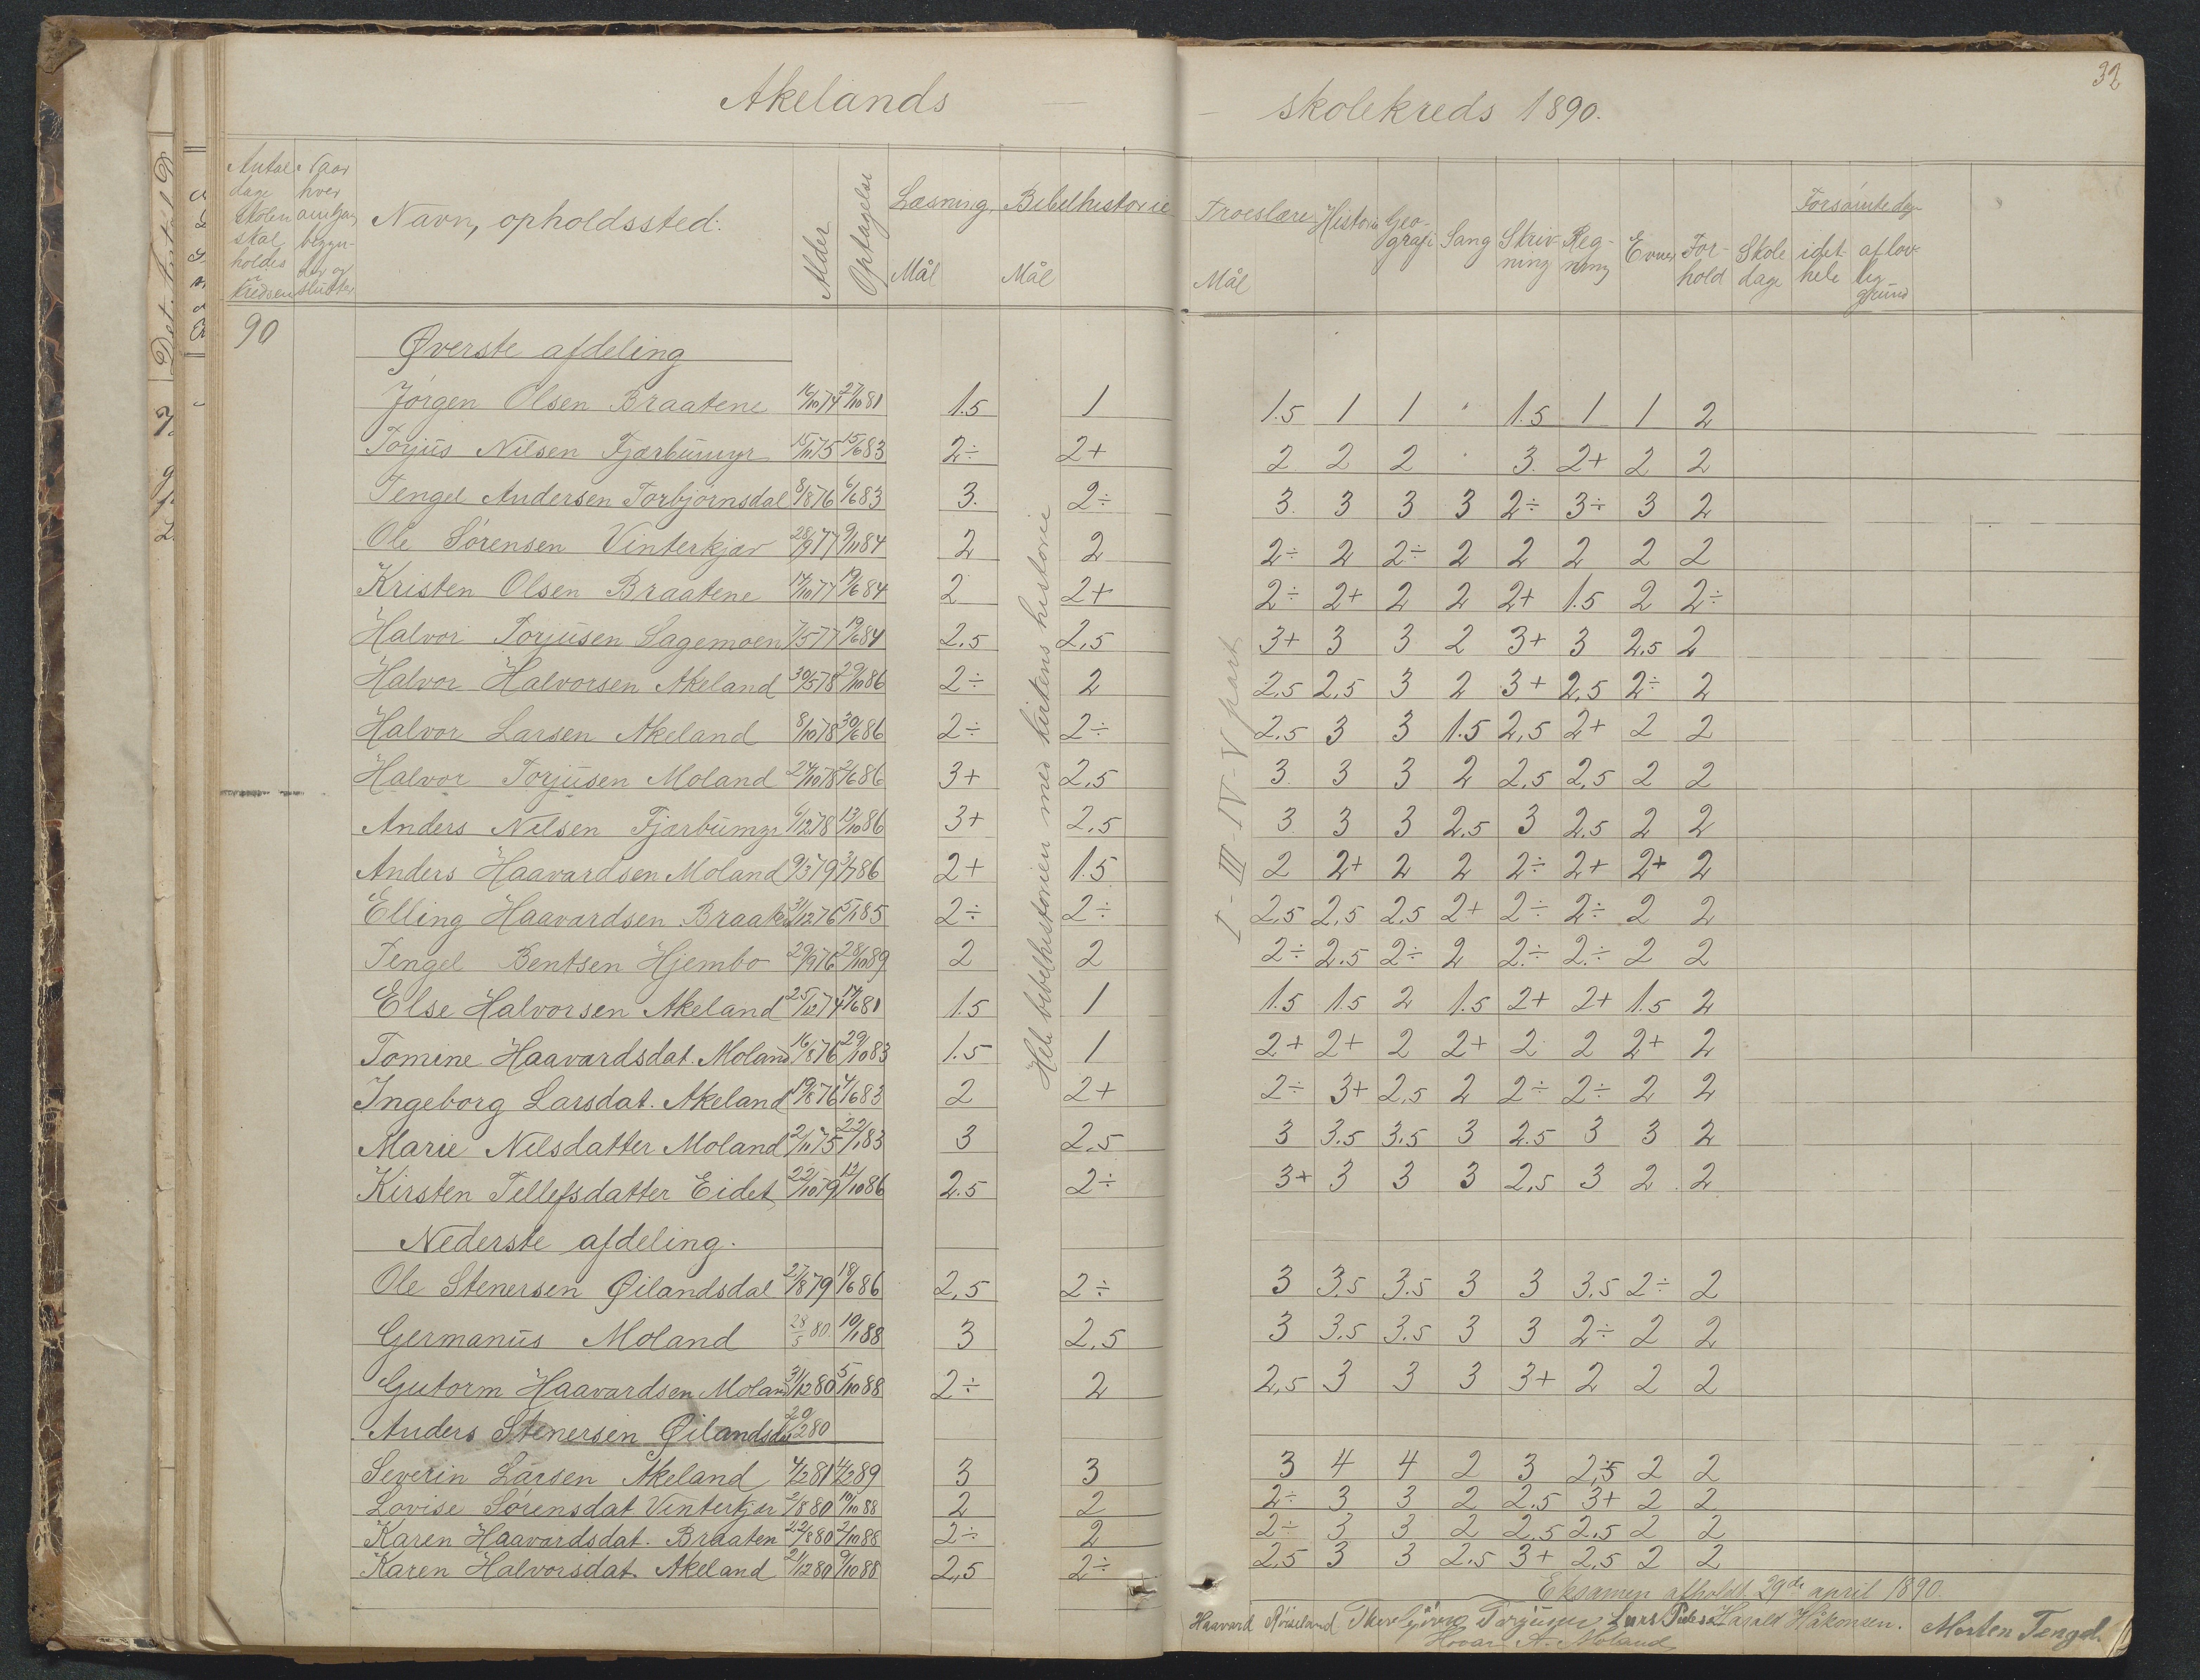 Akelands
skolekreds 1890.
32
Antal dage skolen skal holdes i kredsen
Naar hver omgang begynder og slutter
Navn, opholdssted:
Alder
Optagelse
Læsning Mål
Bibelhistorie Mål
Troeslære Mål
Historie
Geografi
Sang
Skrivning
Regning
Evner
Forhold
Skole dage
Forsömte dage
idet hele
aflovlig grund
90
Øverste afdeling
Jörgen Olsen Braatene 16/10 74 27/10 81 1.5 1 1.5 1 1 1.5 1 1 2
Torjus Nilsen Fjærbumyr 15/11 75 15/6 83 2÷ 2+ 2 2 2 3. 2+ 2 2
Tengel Andersen Torbjörnsdal 8/8 76 6/6 83 3. 2÷ 3. 3 3 3 2÷ 3÷ 3 2
Ole Sörensen Vinterkjær 28/9 77 9/11 84 2 2 2÷ 2 2÷ 2 2 2 2 2
Kristen Olsen Braatene 14/10 77 19/6 84 2 2+ 2÷ 2+ 2 2 2+ 1.5 2 2÷
Halvor Torjusen Lagemoen 7/5 77 19/6 84 2.5 2,5 3+ 3 3 2 3+ 3 2,5 2
Halvor Halvorsen Akeland 30/5 78 29/10 86 2÷ 2 2,5 2,5 3 2 3+ 2,5 2÷ 2
Halvor Larsen Akeland 8/10 78 30/6 86 2÷ 2÷ 2.5 3 3 1.5 2,5 2+ 2 2
Halvor Torjusen Moland 24/10 78 2/6 86 3+ 2,5 3. 3 3 2 2,5 2,5 2 2
Anders Nilsen Fjærbumyr 6/12 78 13/10 86 3+ 2,5 3. 3 3 2,5 3 2,5 2 2
Anders Haavardsen Moland 9/3 79 3/7 86 2+ 1.5 2 2+ 2 2 2÷ 2+ 2+ 2
Elling Haavardsen Braaten 31/12 76 5/1 85 2÷ 2÷ 2,5 2,5 2,5 2+ 2÷ 2÷ 2 2
Tengel Bentsen Hjembo 29/9 76 28/10 89 2 2 2÷ 2.5 2÷ 2 2÷ 2÷ 2 2
Else Halvorsen Akeland 25/12 74 14/6 81 1.5 1 1.5 1.5 2 1.5 2+ 2+ 1.5 2
Tomine Haavardsdat. Moland 16/8 76 29/10 83 1.5 1 2+ 2+ 2 2+ 2 2 2+ 2
Ingeborg Larsdat. Akeland 19/8 76 4/6 83 2 2+ 2÷ 3+ 2,5 2 2÷ 2÷ 2 2
Marie Nilsdatter Moland 2/11 75 22/1 83 3 2.5 3 3.5 3.5 3 2.5 3 3 2
Kirsten Tellefsdatter Eidet 22/10 79 12/10 86 2.5 2÷ 3+ 3 3 3 2,5 3 2 2
Hele bibelhistorien med kirkens historie
I - III - IV - V part
Nederste afdeling.
Ole Stenersen Øilandsdal 27/8 79 18/6 86 2,5 2÷ 3 3.5 3.5 3 3 3.5 2÷ 2
Germanus Moland 28/5 80. 10/1 88 3 2,5 3 3.5 3.5 3 3 2÷ 2 2
Gutorm Haavardsen Moland 31/12 80 5/10 88 2÷ 2 2,5 3 3 3 3+ 2 2 2
Anders Stenersen Øilandsdal 20/2 80
Severin Larsen Akeland 4/2 81 4/2 89 3 3 3 4 4 2 3 2,5 2 2
Lovise Sörensdat Vinterkjær 2/8 80 10/10 88 2 2 2÷ 3 3 2 2.5 3+ 2 2
Karen Haavardsdat. Braaten 22/8 80 2/10 88 2÷ 2 2÷ 3 3 2 2.5 2,5 2 2
Karen Halvorsdat. Akeland 21/12 80 9/10 88 2,5 2÷ 2,5 3 3 2.5 3+ 2,5 2 2
Eksamen afholdt 29de april 1890.
Haavard Röiseland Thorbjörn Torjusen Lars Peders Harald Håkonsen. Morten Tengels
Hovar A. Moland